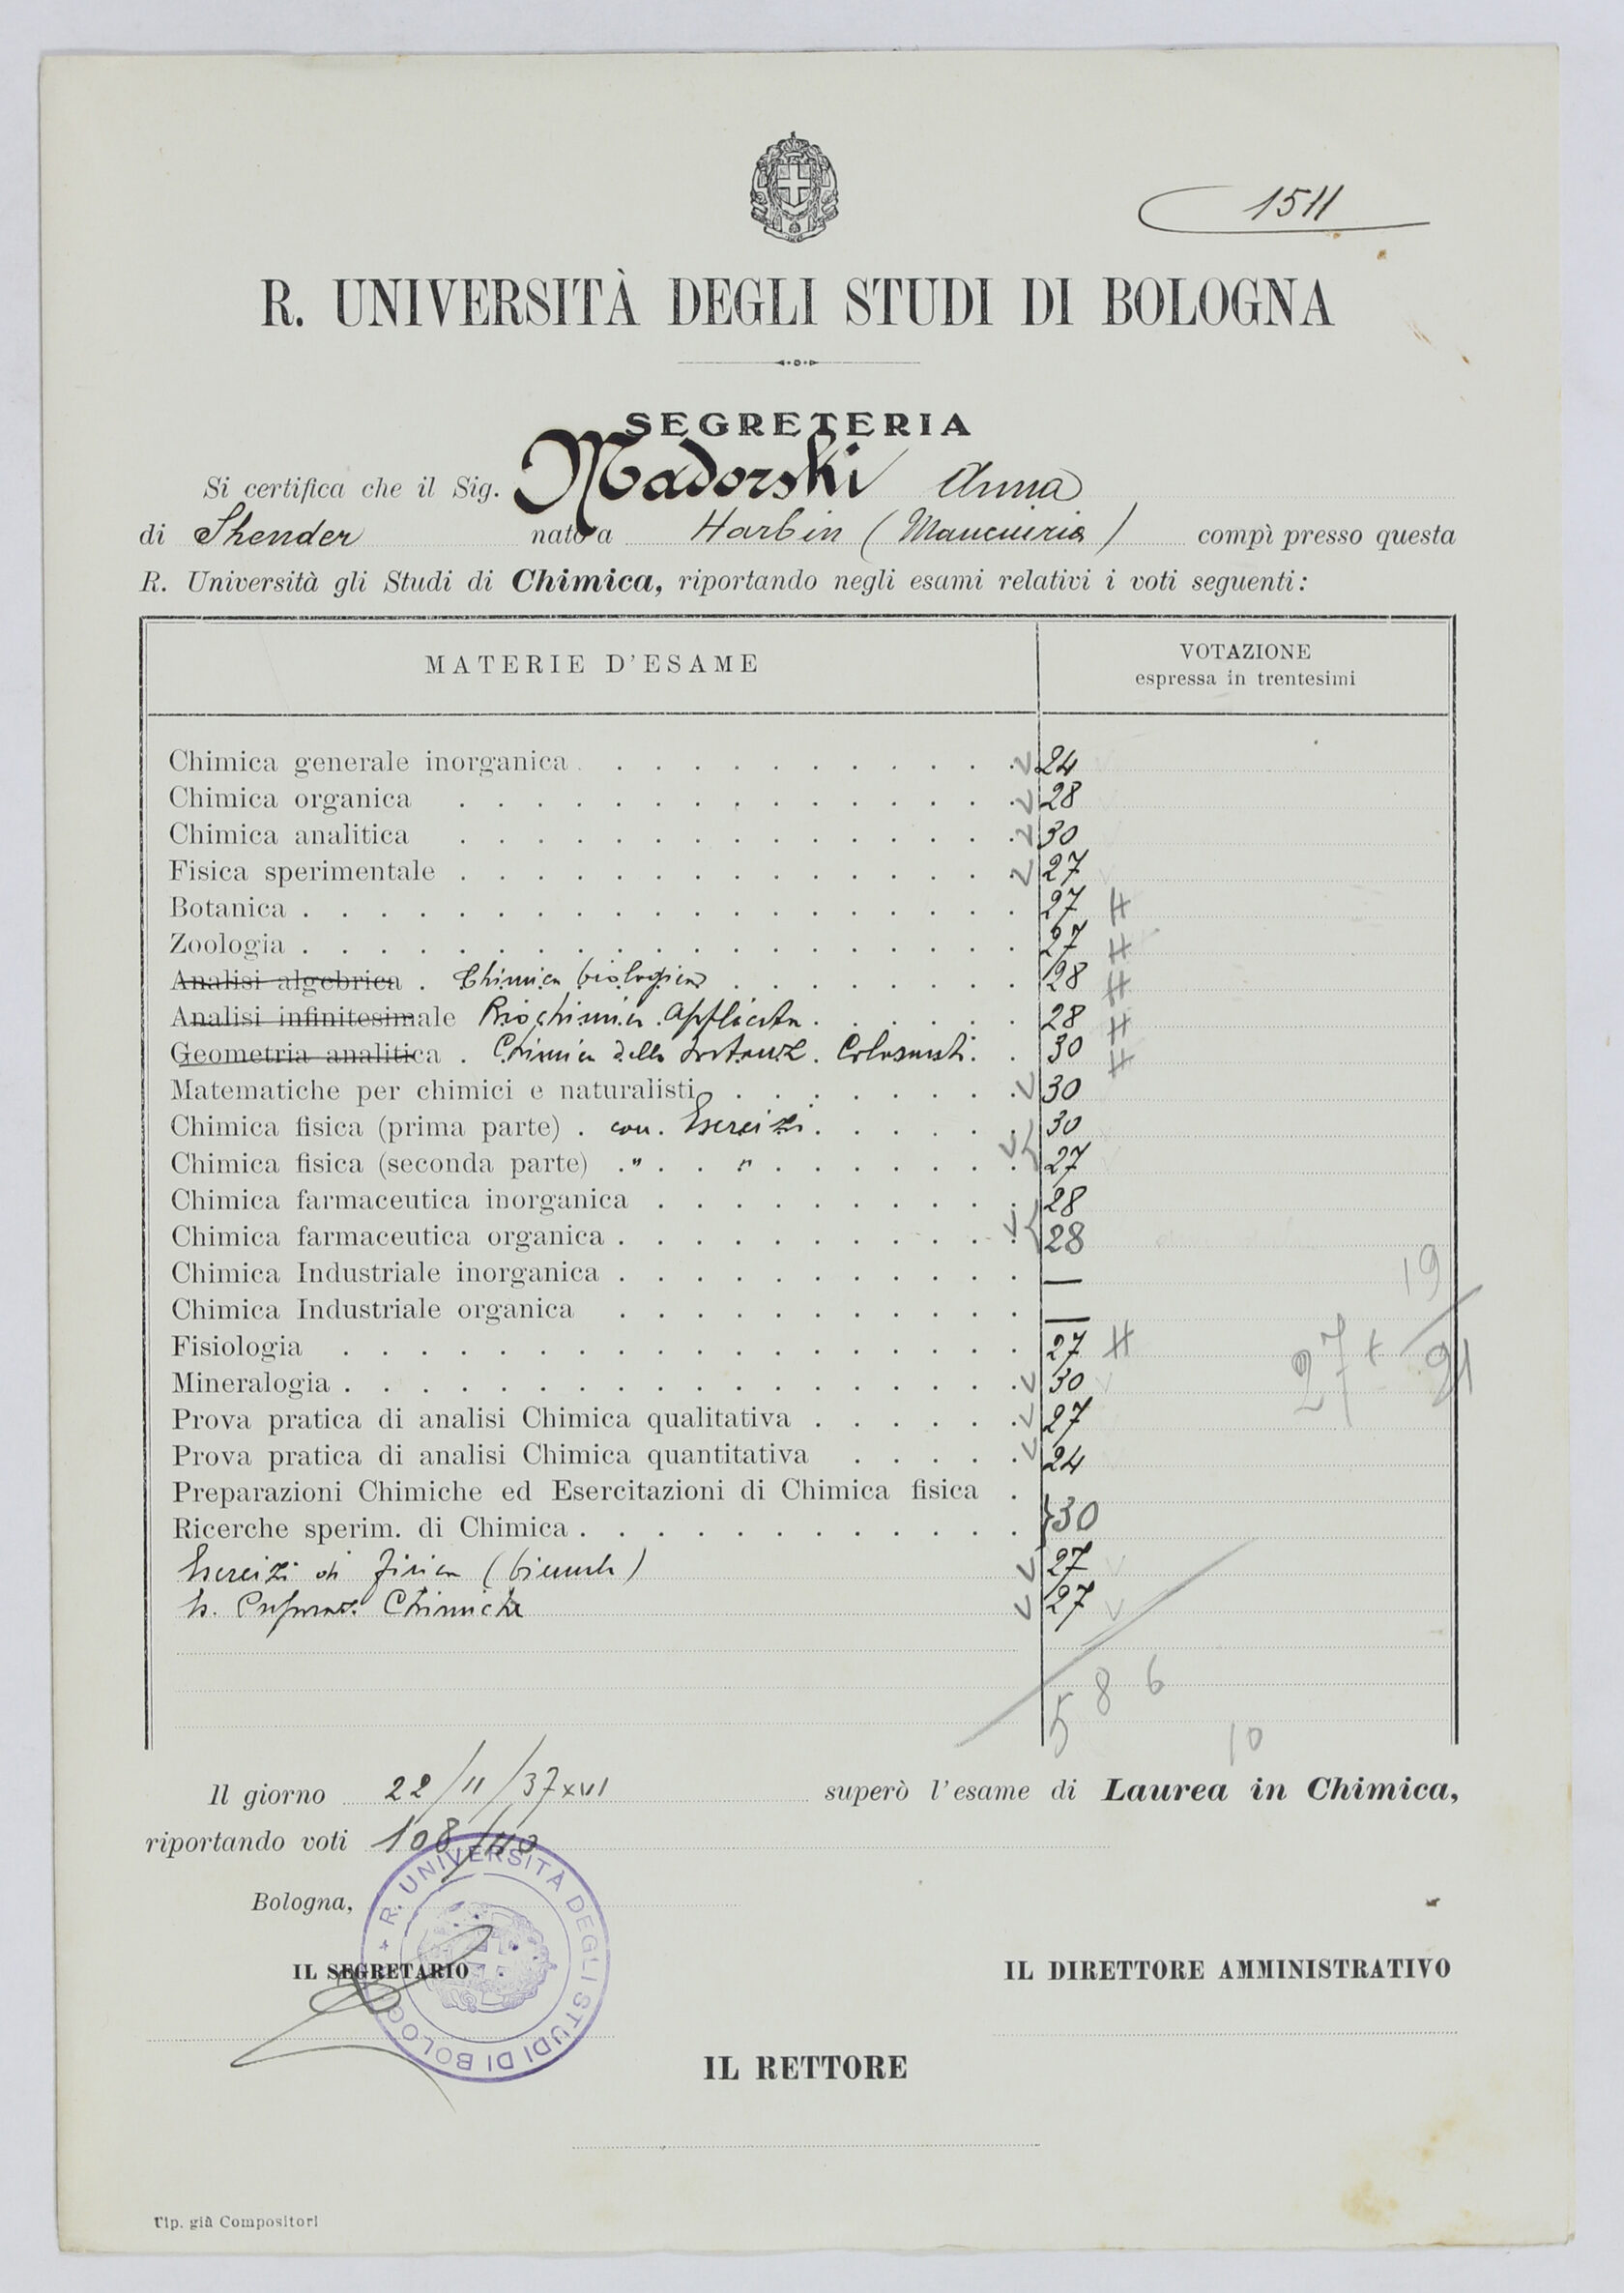 1511
R. UNIVERSITÀ DEGLI STUDI DI BOLOGNA
SEGRETERIA
Si certifica che il Sig. Madorski Anna
di Shender nato a Harbin (Manciuria) compì presso questa
R. Università gli Studi di Chimica, riportando negli esami relativi i voti seguenti:
MATERIE D'ESAME VOTAZIONE
espressa in trentesimi
Chimica generale inorganica 24
Chimica organica 28
Chimica analitica 30
Fisica sperimentale 27
Botanica 27
Zoologia 27
Analisi algebrica Chimica biologica 28
Analisi infinitesimale Biochimica applicata 28
Geometria analitica Chimica delle sostanze Coloranti 30
Matematiche per chimici e naturalisti 30
Chimica fisica (prima parte) con Esercizi 30
Chimica fisica (seconda parte) " " 27
Chimica farmaceutica inorganica 28
Chimica farmaceutica organica 28
Chimica Industriale inorganica —
Chimica Industriale organica —
Fisiologia 27
Mineralogia 30
Prova pratica di analisi Chimica qualitativa 27
Prova pratica di analisi Chimica quantitativa 24
Preparazioni Chimiche ed Esercitazioni di Chimica fisica
Ricerche sperim. di Chimica } 30
Esercizi di fisica (biennale) 27
Es. Preparaz. Chimiche 27
27 + 19/21
586
10
Il giorno 22/11/37 XVI superò l'esame di Laurea in Chimica,
riportando voti 108/110
Bologna,
R. UNIVERSITÀ DEGLI STUDI DI BOLOGNA
IL SEGRETARIO IL DIRETTORE AMMINISTRATIVO
IL RETTORE
Tip. già Compositori